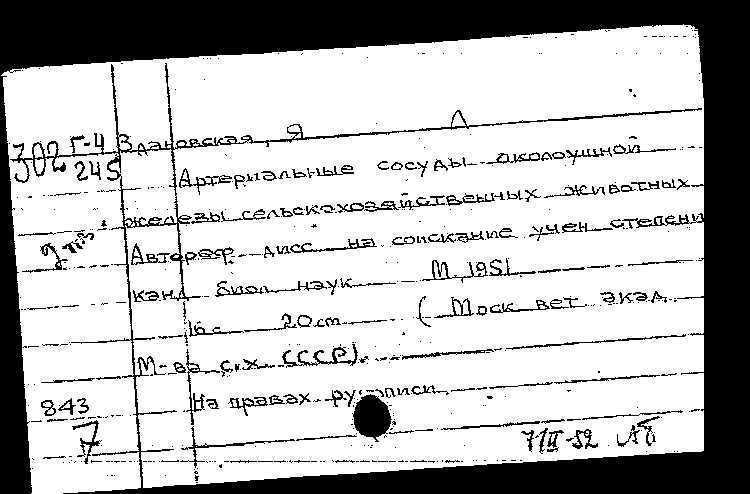 302 Г-4 Здановская, Я Л
245
Артериальные сосуды околоушной
железы сельскохозяйственных животных
Автореф дисс на соискание учен степени
канд биол наук М, 1951
16 с 20 cm (Моск вет акад
М-ва с.х СССР).
На правах рукописи.
843
7
7/II-52